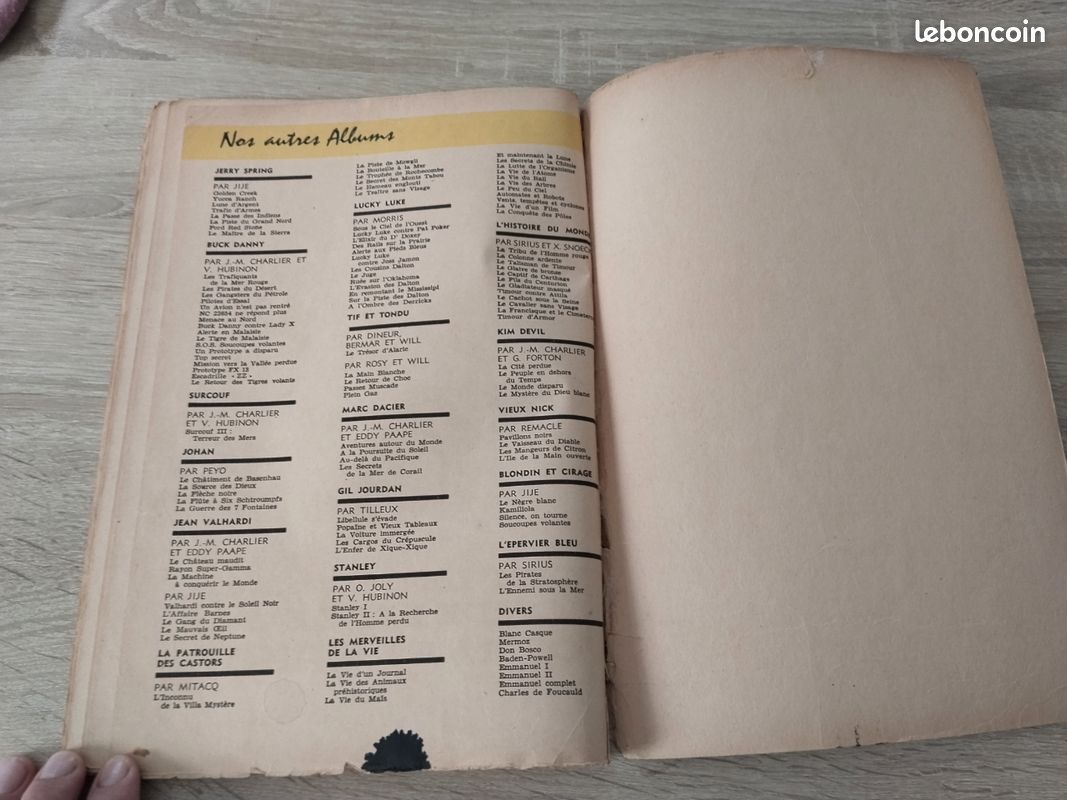 leboncoin
Nos autres Albums
JERRY SPRING
PAR JIJE
Golden Creek
Yucca Ranch
Lune d'Argent
Trafic d'Armes
La Passe des Indiens
La Piste du Grand Nord
Ford Red Stone
Le Maître de la Sierra
BUCK DANNY
PAR J.-M. CHARLIER ET
V. HUBINON
Les Trafiquants
de la Mer Rouge
Les Pirates du Désert
Les Gangsters du Pétrole
Pilotes d'Essai
Un Avion n'est pas rentré
NC 22654 ne répond plus
Menace au Nord
Buck Danny contre Lady X
Alerte en Malaisie
Le Tigre de Malaisie
S.O.S. Soucoupes volantes
Un Prototype a disparu
Top secret
Mission vers la Vallée perdue
Prototype FX 13
Escadrille « ZZ »
Le Retour des Tigres volants
SURCOUF
PAR J.-M. CHARLIER
ET V. HUBINON
Surcouf III :
Terreur des Mers
JOHAN
PAR PEYO
Le Châtiment de Basenhau
La Source des Dieux
La Flèche noire
La Flûte à Six Schtroumpfs
La Guerre des 7 Fontaines
JEAN VALHARDI
PAR J.-M. CHARLIER
ET EDDY PAAPE
Le Château maudit
Rayon Super-Gamma
La Machine
à conquérir le Monde
PAR JIJE
Valhardi contre le Soleil Noir
L'Affaire Barnes
Le Gang du Diamant
Le Mauvais Œil
Le Secret de Neptune
LA PATROUILLE
DES CASTORS
PAR MITACQ
L'Inconnu
de la Villa Mystère
La Piste de Mowgli
La Bouteille à la Mer
Le Trophée de Rochecombe
Le Secret des Monts Tabou
Le Hameau englouti
Le Traître sans Visage
LUCKY LUKE
PAR MORRIS
Sous le Ciel de l'Ouest
Lucky Luke contre Pat Poker
L'Elixir du Dr Doxey
Des Rails sur la Prairie
Alerte aux Pieds Bleus
Lucky Luke
contre Joss Jamon
Les Cousins Dalton
Le Juge
Ruée sur l'Oklahoma
L'Evasion des Dalton
En remontant le Mississipi
Sur la Piste des Dalton
A l'Ombre des Derricks
TIF ET TONDU
PAR DINEUR,
BERMAR ET WILL
Le Trésor d'Alaric
PAR ROSY ET WILL
La Main Blanche
Le Retour de Choc
Passez Muscade
Plein Gaz
MARC DACIER
PAR J.-M. CHARLIER
ET EDDY PAAPE
Aventures autour du Monde
A la Poursuite du Soleil
Au-delà du Pacifique
Les Secrets
de la Mer de Corail
GIL JOURDAN
PAR TILLEUX
Libellule s'évade
Popaïne et Vieux Tableaux
La Voiture immergée
Les Cargos du Crépuscule
L'Enfer de Xique-Xique
STANLEY
PAR O. JOLY
ET V. HUBINON
Stanley I
Stanley II : A la Recherche
de l'Homme perdu
LES MERVEILLES
DE LA VIE
La Vie d'un Journal
La Vie des Animaux
préhistoriques
La Vie du Maïs
Et maintenant la Lune
Les Secrets de la Chimie
La Lutte de l'Organisme
La Vie de l'Atome
La Vie du Rail
La Vie des Arbres
Le Feu du Ciel
Automates et Robots
Vents, tempêtes et cyclones
La Vie d'un Film
La Conquête des Pôles
L'HISTOIRE DU MOND
PAR SIRIUS ET X. SNOECK
La Tribu de l'Homme rouge
La Colonne ardente
Le Talisman de Timour
Le Glaive de bronze
Le Captif de Carthage
Le Fils du Centurion
Le Gladiateur masqué
Timour contre Attila
Le Cachot sous la Seine
Le Cavalier sans Visage
La Francisque et le Cimeterre
Timour d'Armor
KIM DEVIL
PAR J.-M. CHARLIER
ET G. FORTON
La Cité perdue
Le Peuple en dehors
du Temps
Le Monde disparu
Le Mystère du Dieu blanc
VIEUX NICK
PAR REMACLE
Pavillons noirs
Le Vaisseau du Diable
Les Mangeurs de Citron
L'Ile de la Main ouverte
BLONDIN ET CIRAGE
PAR JIJE
Le Nègre blanc
Kamiliola
Silence, on tourne
Soucoupes volantes
L'EPERVIER BLEU
PAR SIRIUS
Les Pirates
de la Stratosphère
L'Ennemi sous la Mer
DIVERS
Blanc Casque
Mermoz
Don Bosco
Baden-Powell
Emmanuel I
Emmanuel II
Emmanuel complet
Charles de Foucauld